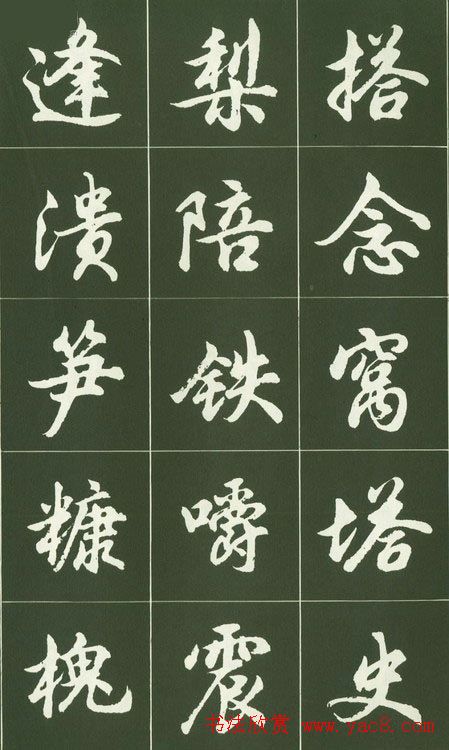 搭念窝塔史
梨陪铁嚼震
逢溃笋糠槐
书法欣赏 www.yac8.com